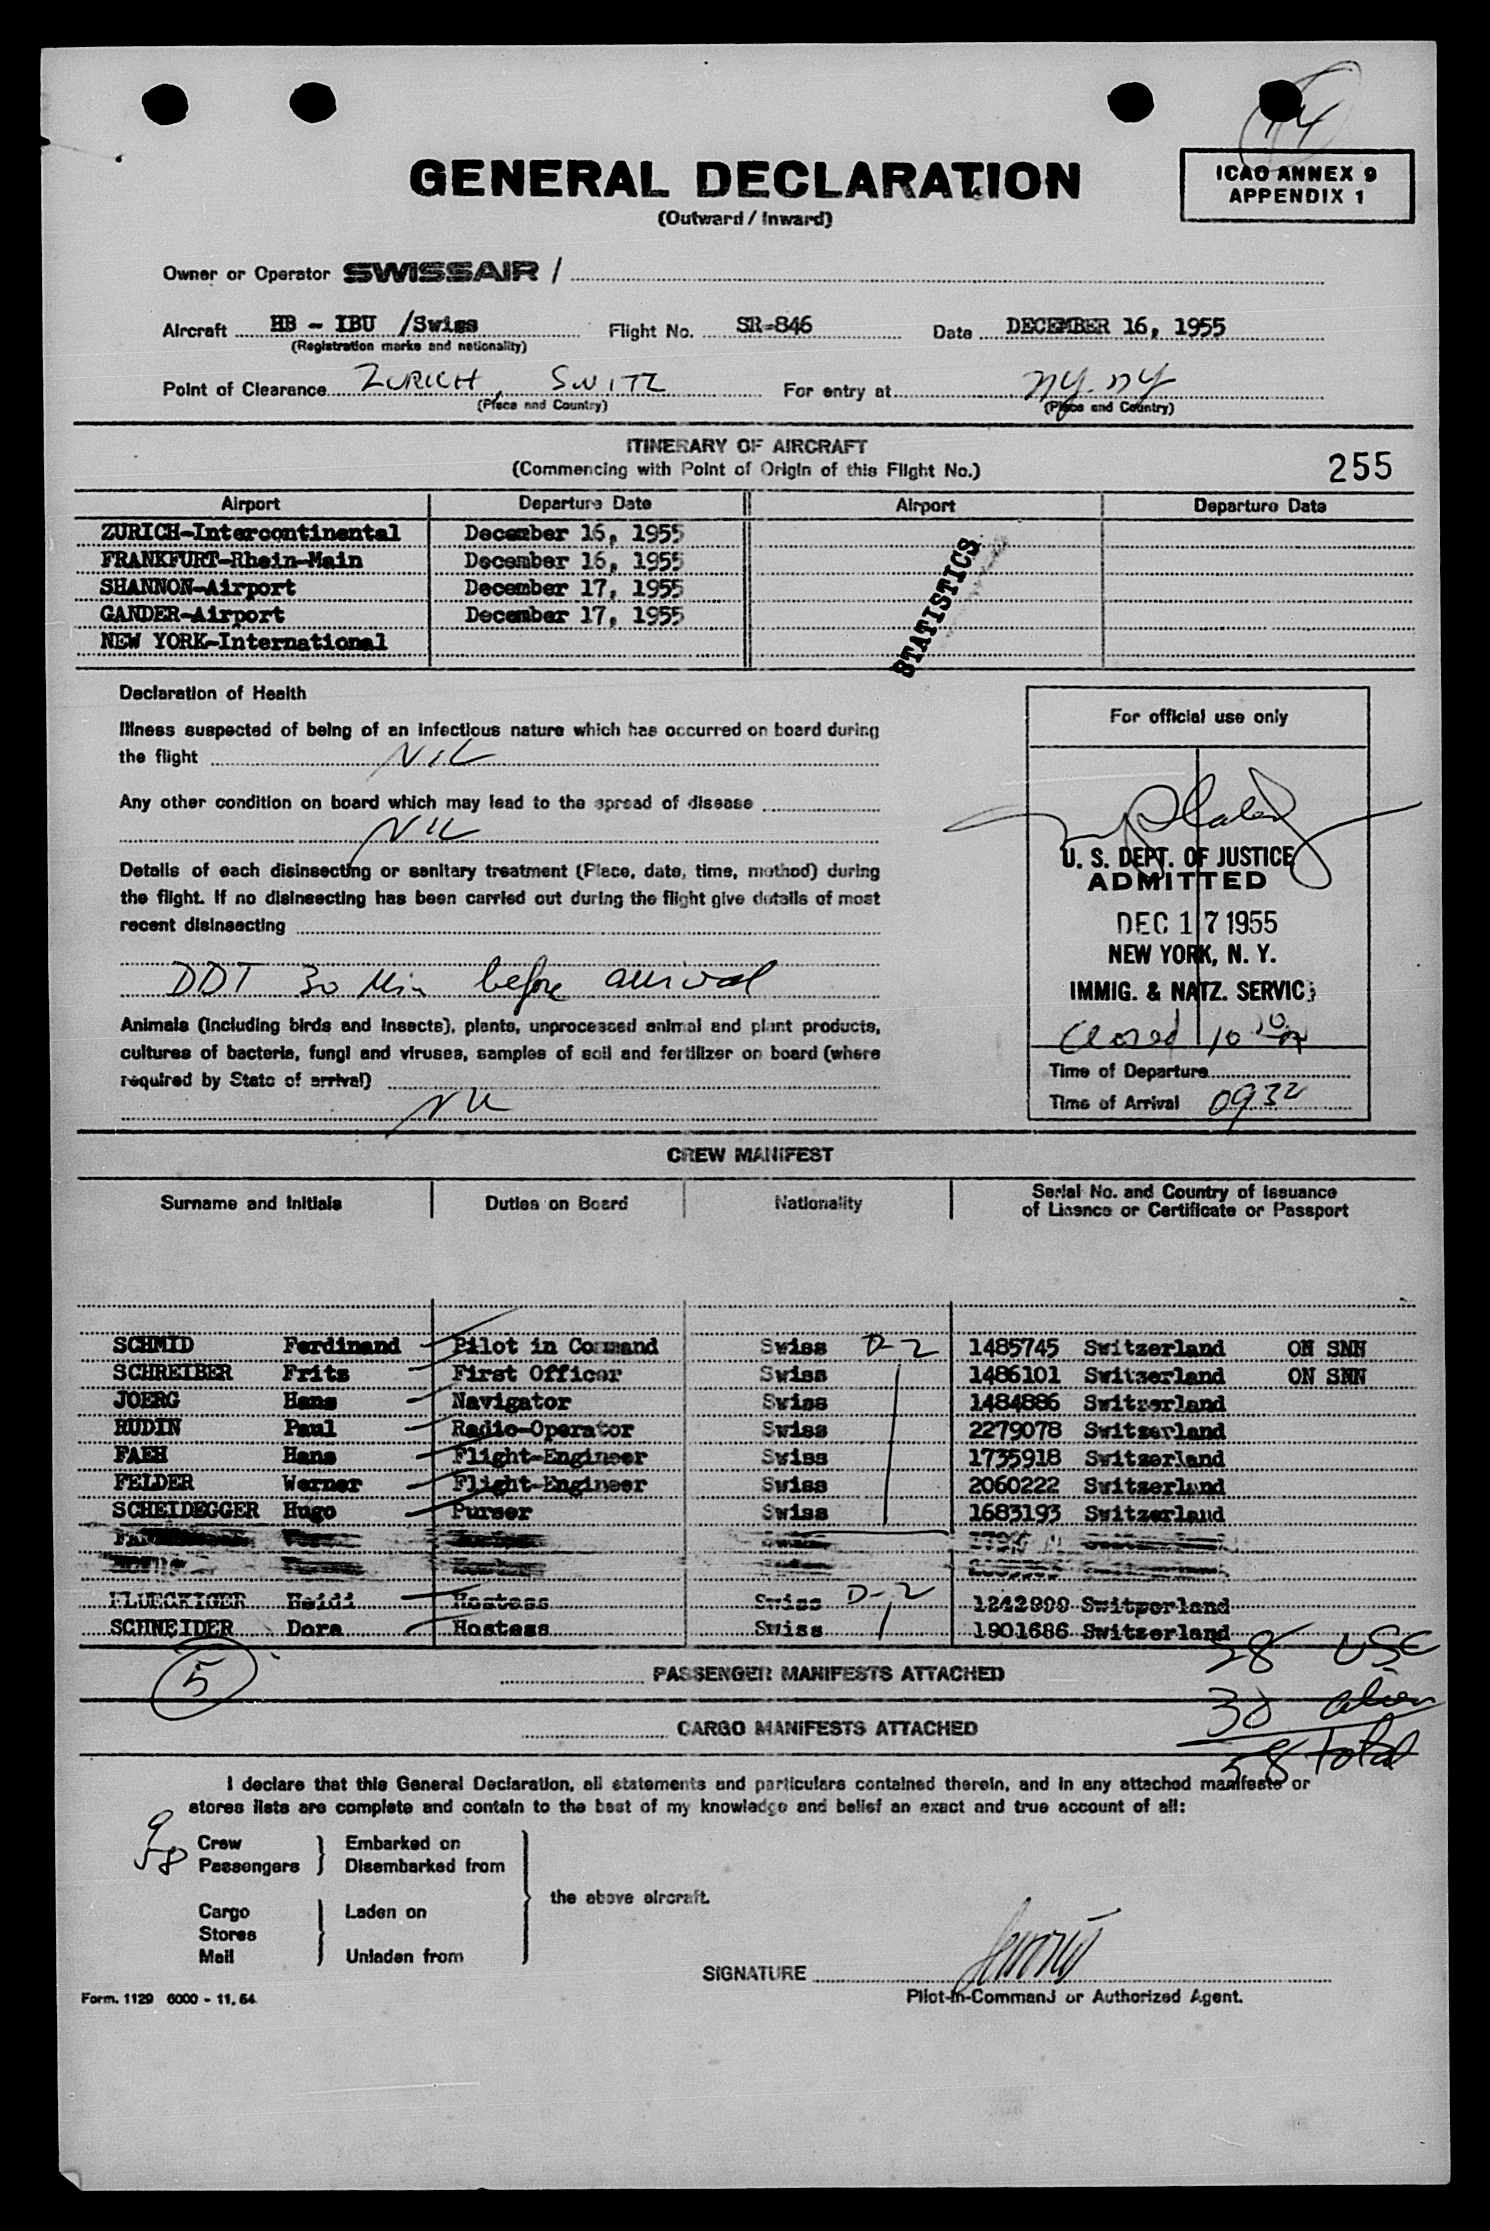 14
GENERAL DECLARATION
(Outward / Inward)
ICAO ANNEX 9
APPENDIX 1
Owner or Operator SWISSAIR /
Aircraft HB - IBU /Swiss Flight No. SR-846 Date DECEMBER 16, 1955
(Registration marks and nationality)
Point of Clearance ZURICH, SWITZ For entry at NY. NY
(Place and Country) (Place and Country)
ITINERARY OF AIRCRAFT
(Commencing with Point of Origin of this Flight No.)
255
Airport Departure Date Airport Departure Date
ZURICH-Intercontinental December 16, 1955
FRANKFURT-Rhein-Main December 16, 1955
SHANNON-Airport December 17, 1955
GANDER-Airport December 17, 1955
NEW YORK-International
STATISTICS
Declaration of Health
Illness suspected of being of an infectious nature which has occurred on board during
the flight NIL
Any other condition on board which may lead to the spread of disease
NIL
Details of each disinsecting or sanitary treatment (Place, date, time, method) during
the flight. If no disinsecting has been carried out during the flight give details of most
recent disinsecting
DDT 30 Min before arrival
Animals (including birds and insects), plants, unprocessed animal and plant products,
cultures of bacteria, fungi and viruses, samples of soil and fertilizer on board (where
required by State of arrival)
NIL
For official use only
U. S. DEPT. OF JUSTICE
ADMITTED
DEC 17 1955
NEW YORK, N. Y.
IMMIG. & NATZ. SERVIC
Closed 10 10 A
Time of Departure
Time of Arrival 0932
CREW MANIFEST
Surname and Initials Duties on Board Nationality Serial No. and Country of Issuance
of Licence or Certificate or Passport
SCHMID Ferdinand Pilot in Command Swiss D-2 1485745 Switzerland ON SNN
SCHREIBER Frits First Officer Swiss 1486101 Switzerland ON SNN
JOERG Hans Navigator Swiss 1484886 Switzerland
RUDIN Paul Radio-Operator Swiss 2279078 Switzerland
FAEH Hans Flight-Engineer Swiss 1735918 Switzerland
FELDER Werner Flight-Engineer Swiss 2060222 Switzerland
SCHEIDEGGER Hugo Purser Swiss 1683193 Switzerland
FLUECKIGER Heidi Hostess Swiss D-2 1242899 Switzerland
SCHNEIDER Dora Hostess Swiss 1901686 Switzerland
5
PASSENGER MANIFESTS ATTACHED
28 USC
30 alien
58 total
CARGO MANIFESTS ATTACHED
I declare that this General Declaration, all statements and particulars contained therein, and in any attached manifests or
stores lists are complete and contain to the best of my knowledge and belief an exact and true account of all:
9 Crew Embarked on
58 Passengers Disembarked from
the above aircraft.
Cargo Laden on
Stores
Mail Unladen from
SIGNATURE
Pilot-in-Command or Authorized Agent.
Form. 1129 6000 - 11.54